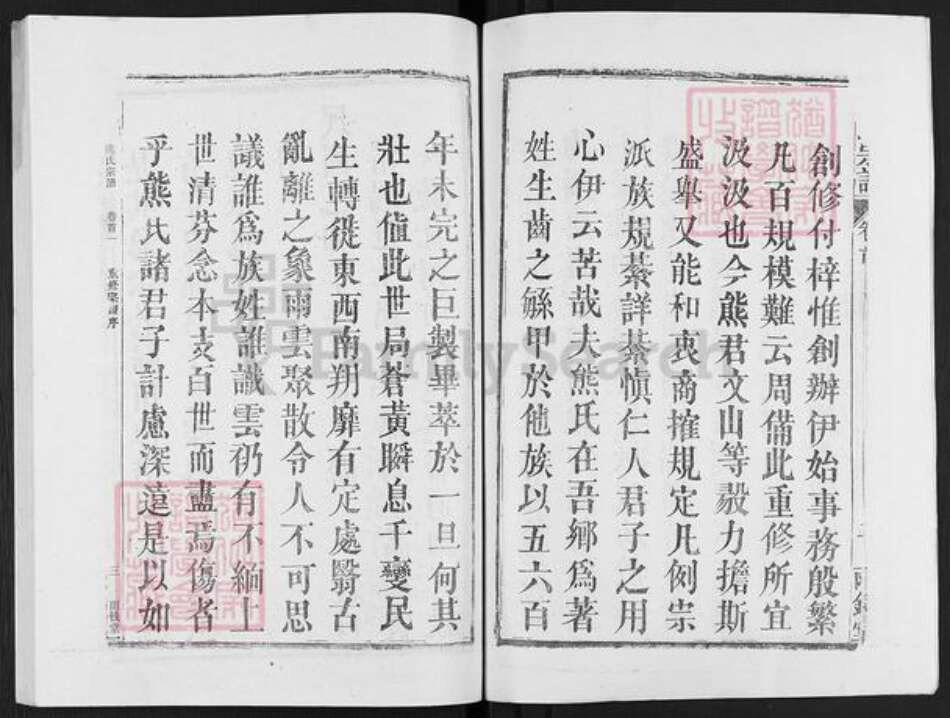 創修付梓惟創辦伊始事務殷繁
凡百規模難云周備此重修所宜
汲汲也今熊君文山等毅力擔斯
盛舉又能和衷商搉規定凡例宗
派族規綦詳綦愼仁人君子之用
心伊云苦哉夫熊氏在吾鄉爲著
姓生齒之緐甲於他族以五六百
年未完之巨製畢萃於一旦何其
壯也值此世局蒼黃瞬息千變民
生轉徙東西南朔靡有定處翳古
亂離之象雨雲聚散令人不可思
議誰爲族姓誰識雲礽有不緬上
世清芬念本支百世而盡焉傷者
乎熊氏諸君子計慮深遠是以如
熊氏宗譜
卷首一
重修宗譜序
三
FamilySearch